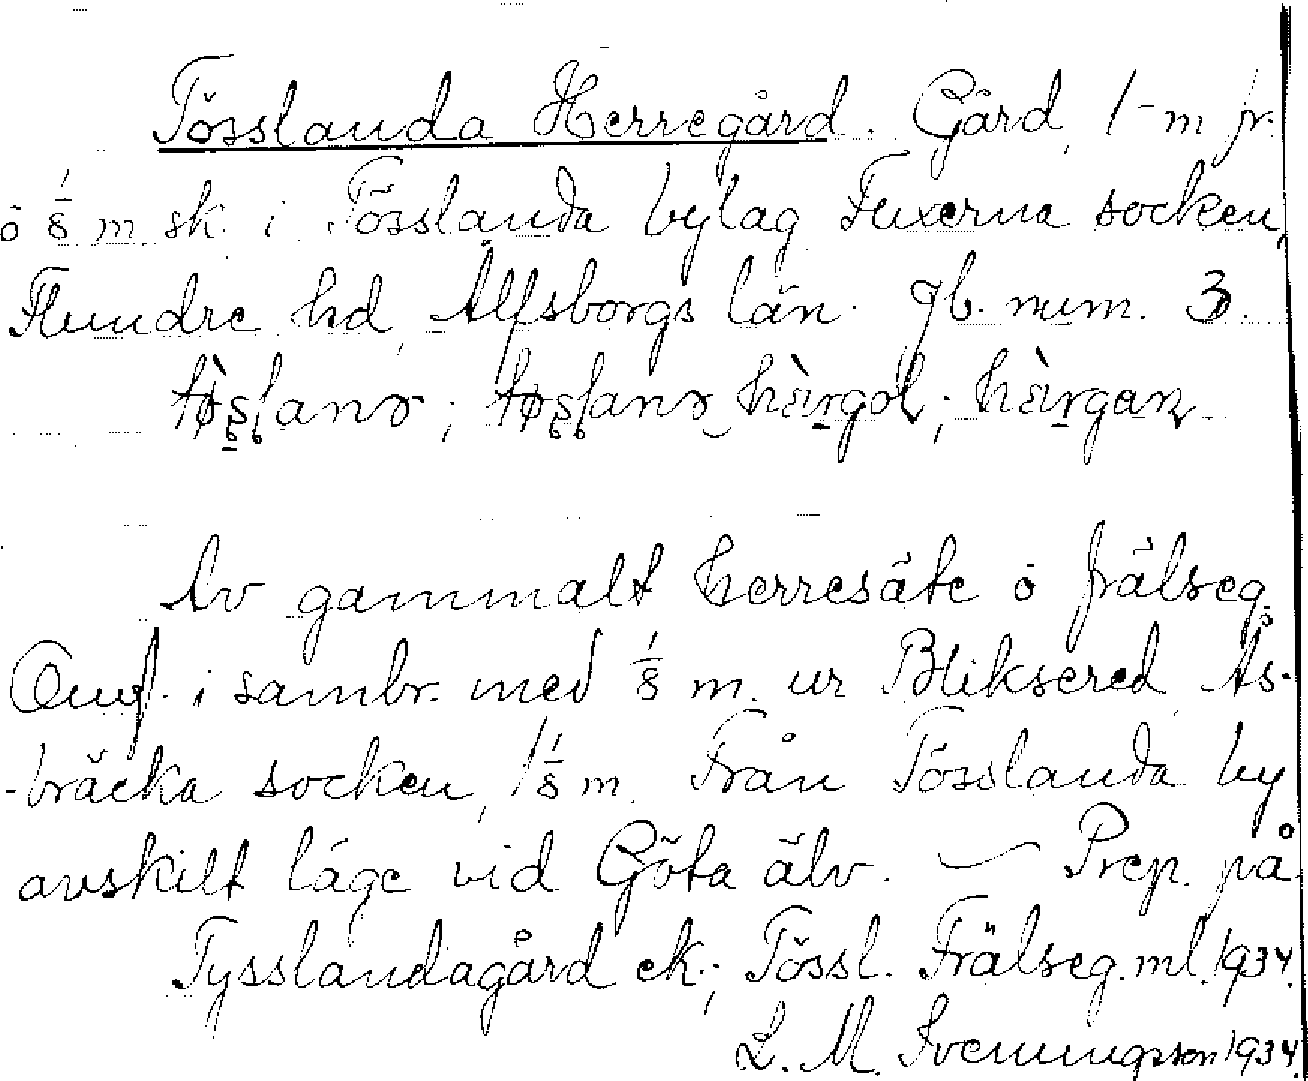 Tösslanda Herregård. Gård, 1- m fr.
ö 1/8 m sk. i Tösslanda bylag Fuxerna socken,
Flundre hd, Älfsborgs län. gb. num. 3.
Av gammalt herresäte o frälseg.
Omf. i sambr. med 1/8 m. ur Bliksered, Ås-
-bräcka socken, 1 1/8 m. Från Tösslanda by
avskilt läge vid Göta älv. — Prep. på.
Tysslandagård ek.; Tössl. Frälseg. ml. 1934.
L. M. Svenungsson 1934.